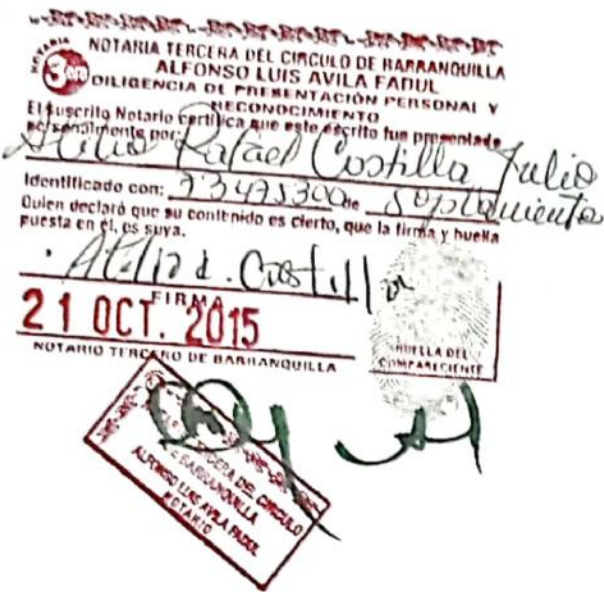 NOTARIA
3era
NOTARIA TERCERA DEL CIRCULO DE BARRANQUILLA
ALFONSO LUIS AVILA FADUL
DILIGENCIA DE PRESENTACIÓN PERSONAL Y
RECONOCIMIENTO
El suscrito Notario certifica que este escrito fue presentado
personalmente por:
Atilio Rafael Costilla Julio
Identificado con: de
Quien declaró que su contenido es cierto, que la firma y huella
puesta en él, es suya.
Costilla
FIRMA
21 OCT. 2015
NOTARIO TERCERO DE BARRANQUILLA
HUELLA DEL
COMPARECIENTE
TERCERA DEL CIRCULO
DE BARRANQUILLA
ALFONSO LUIS AVILA FADUL
NOTARIO